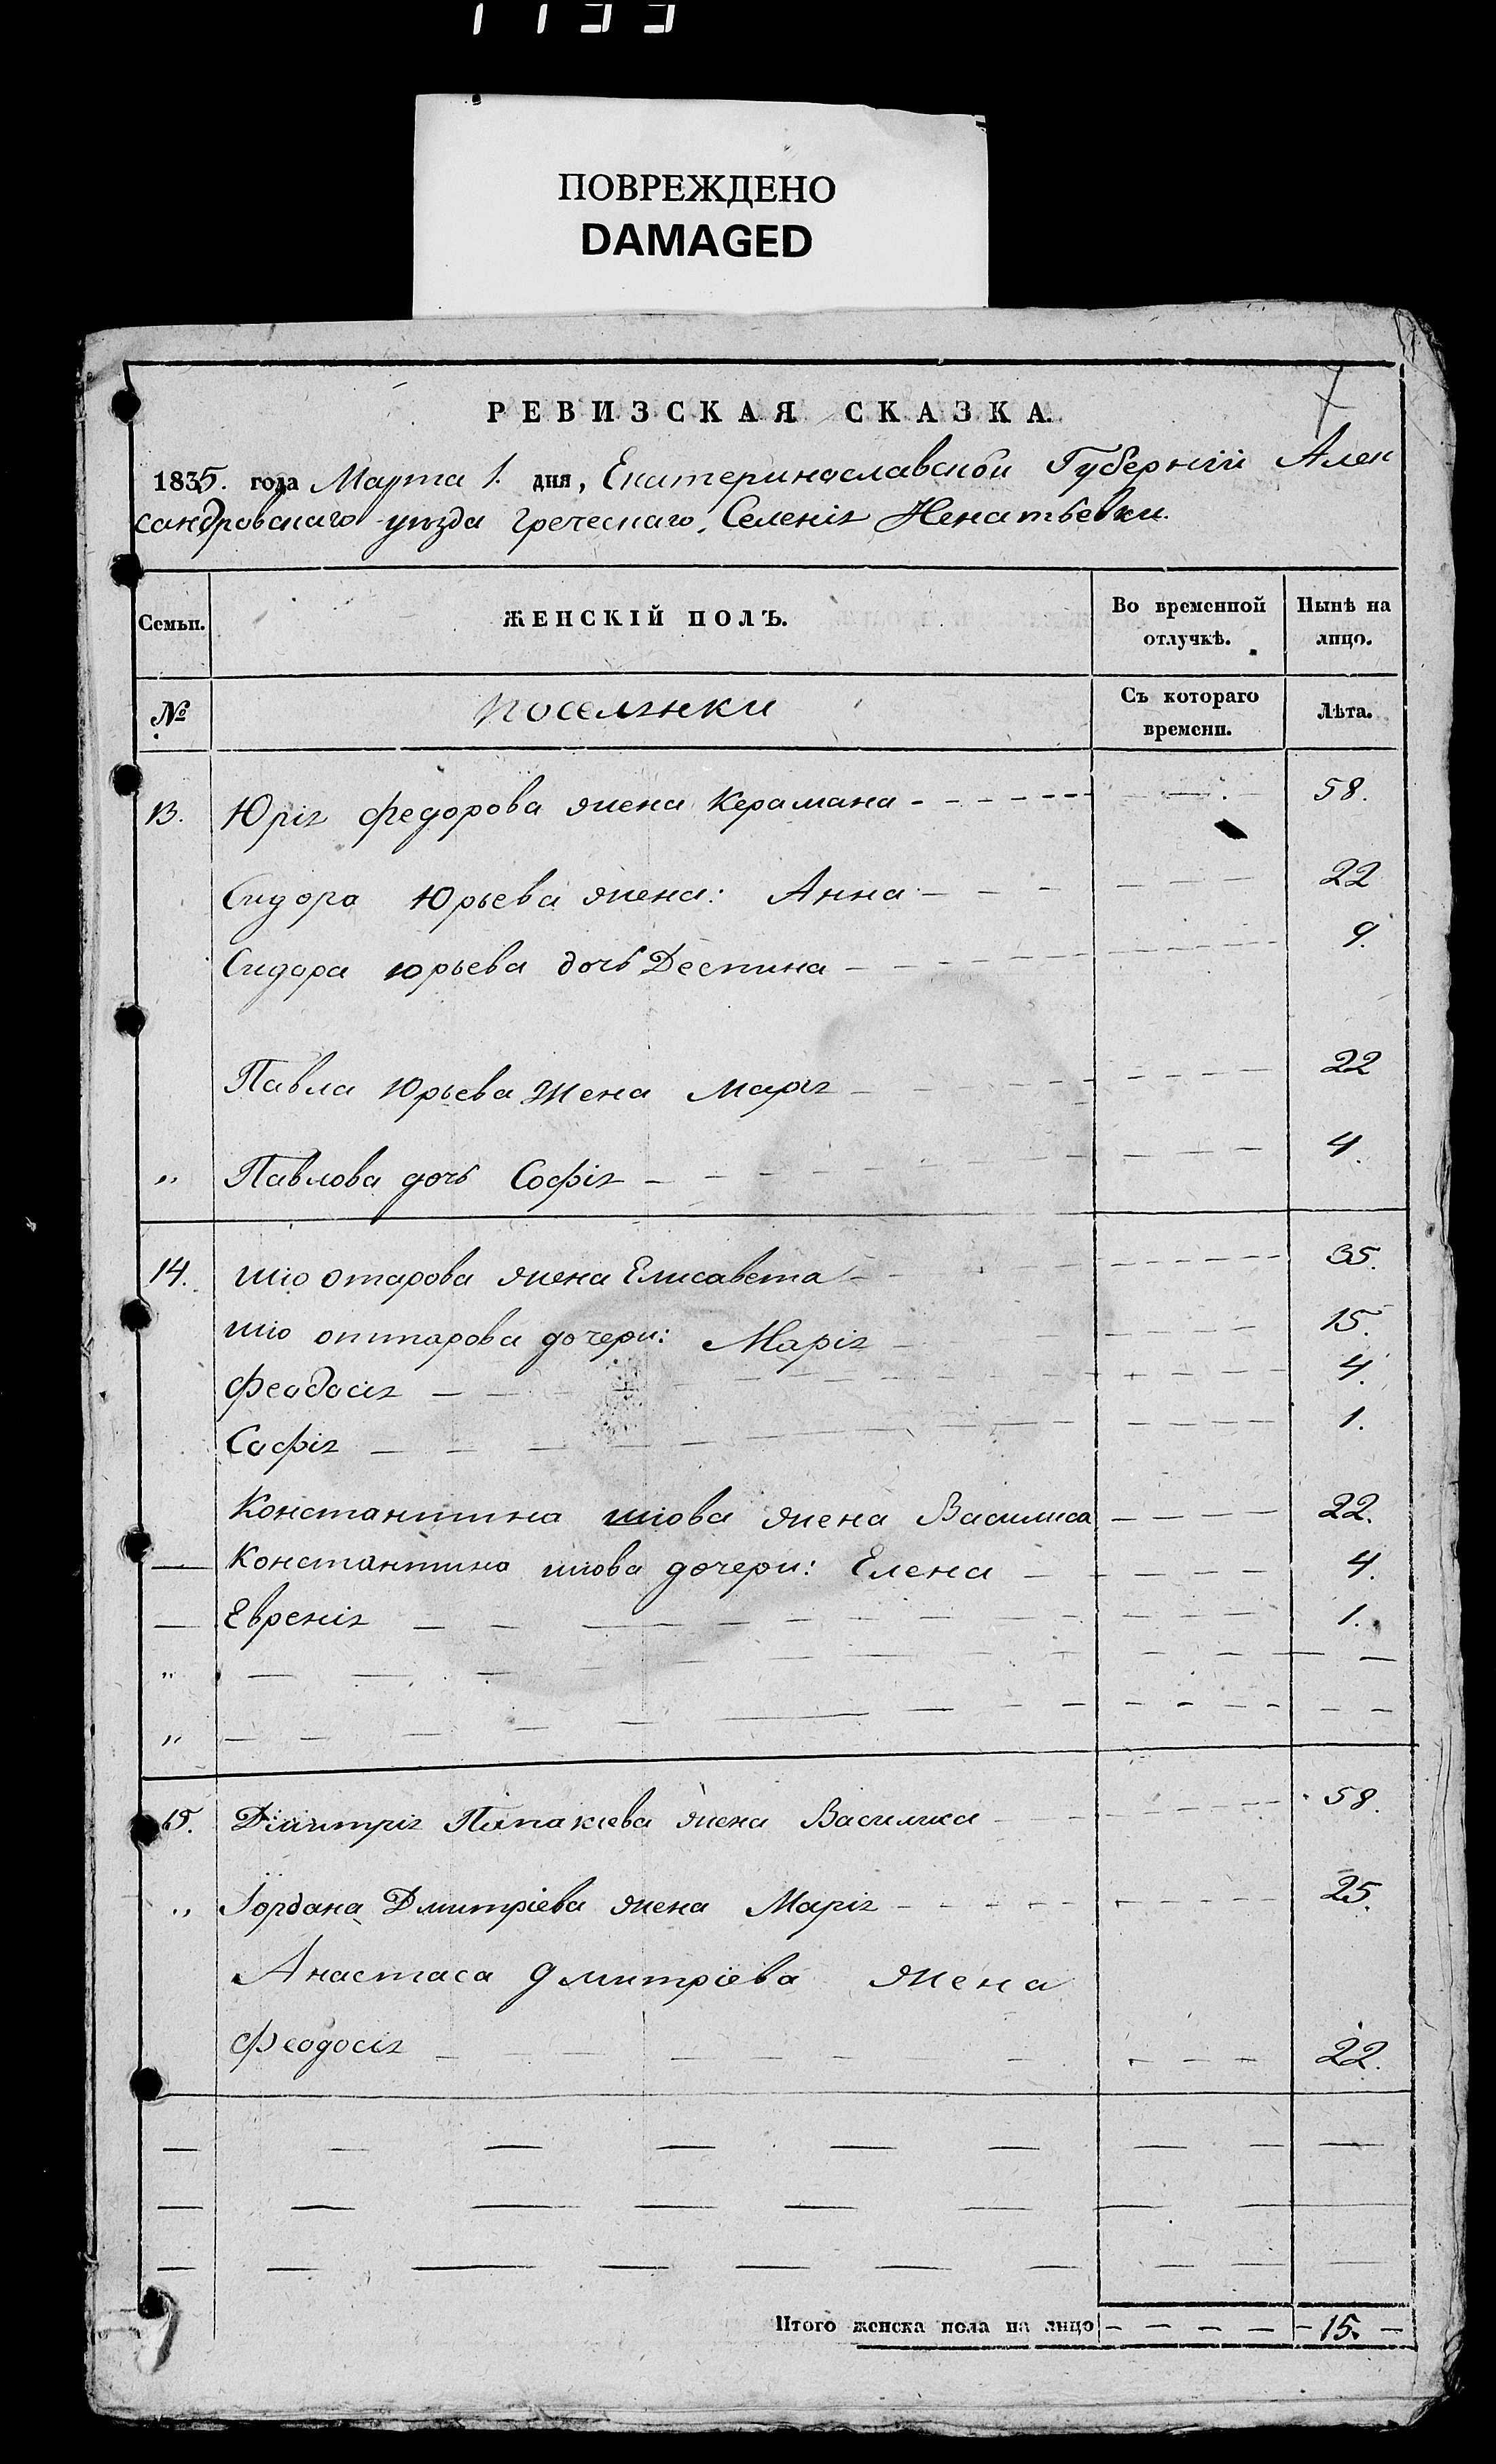 1133
ПОВРЕЖДЕНО
DAMAGED
7
РЕВИЗСКАЯ СКАЗКА.
1835. года Марта 1. дня, Екатеринославской Губернiи Алек
сандровскаго уѣзда греческаго, Селенiя Игнатьевки.
Семьи. ЖЕНСКIЙ ПОЛЪ. Во временной отлучкѣ. Нынѣ на лицо.
№ поселянки Съ котораго времени. Лѣта.
13. Юрiя федорова жена Керамана - - - - - - 58.
Сидора Юрьева жена: Анна - - - 22
Сидора юрьева дочь Деспина - - - 9.
Павла Юрьева жена Марiя - - - 22
„ Павлова дочь Софiя - - - 4.
14. отарова жена Елисавета - - - 35.
оттарова дочери: Марiя - - - 15.
Феодосiя - - - 4.
Софiя - - - 1.
Константина жена Василиса - - - - 22.
— Константина дочери: Елена - - - 4.
— - - - 1.
„ — — —
„ — — —
15. жена Василиса - - - 58.
„ Iордана Дмитрiева жена Марiя - - - - 25.
Анастаса дмитрiева жена
Феодосiя - - - 22.
— — — — — — — — —
— — — — — — — — —
— — — — — — — — —
Итого женска пола на лицо - - - - - 15. -